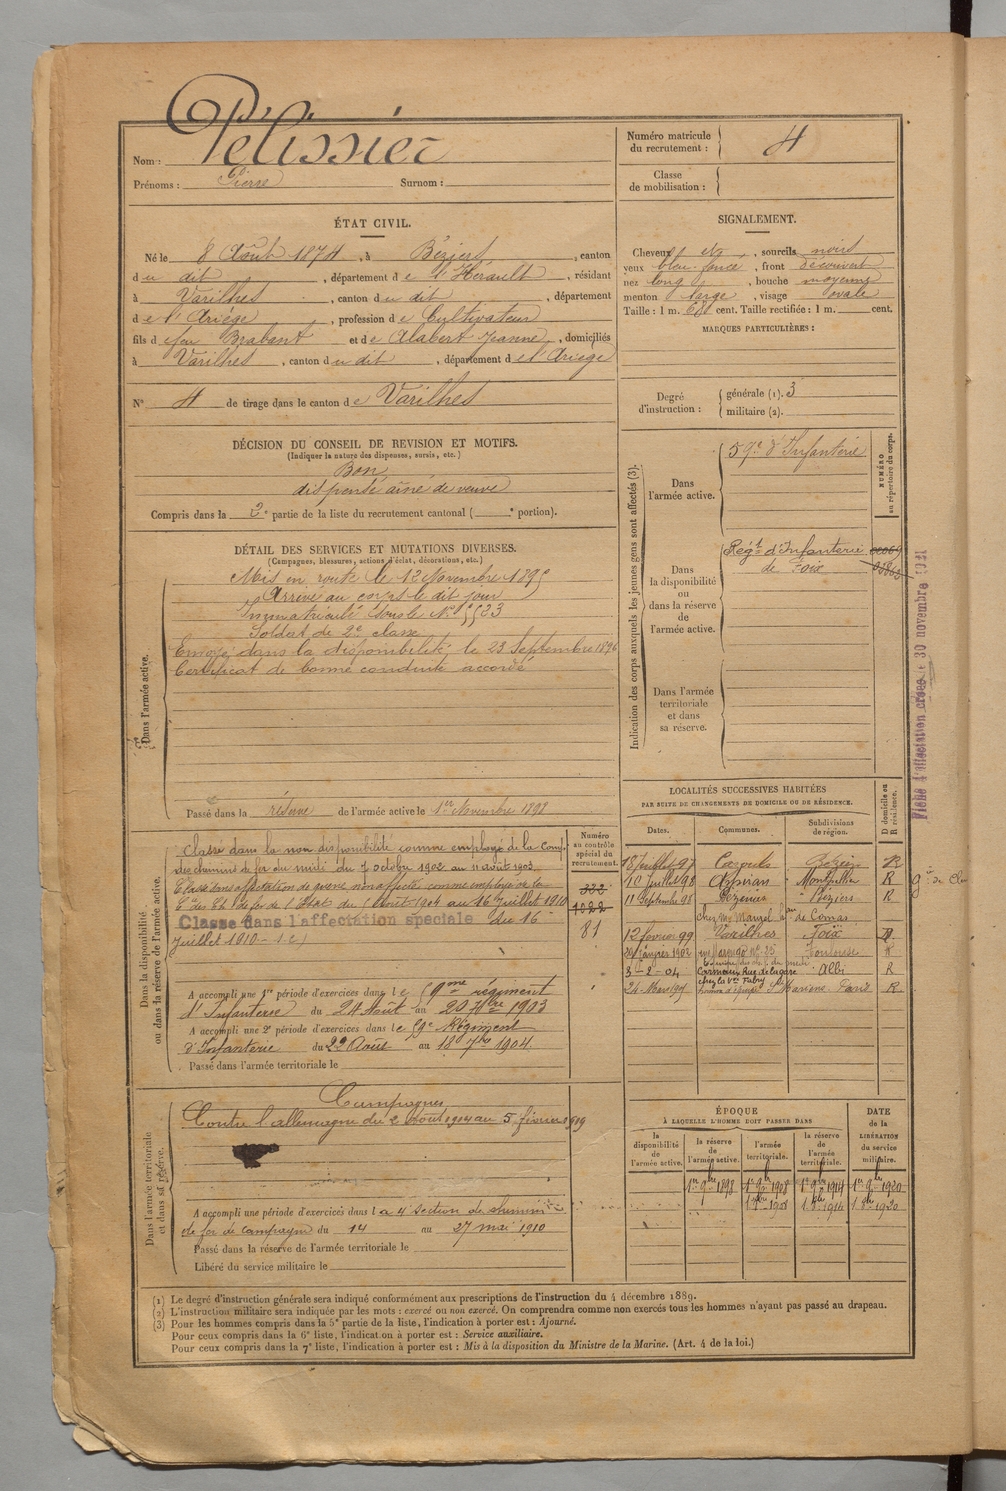 Nom : Pélissier
Prénoms : Pierre Surnom :
Numéro matricule du recrutement : 4
Classe de mobilisation :
ÉTAT CIVIL.
Né le 8 Août 1874, à Béziers, canton
du dit, département de l'Hérault, résidant
à Varilhes, canton du dit, département
de l'Ariège, profession de Cultivateur
fils de feu Brabant et de Alabert Jeanne, domiciliés
à Varilhes, canton du dit, département de l'Ariège
N° 4 de tirage dans le canton de Varilhes
SIGNALEMENT.
Cheveux et, sourcils noirs
yeux bleu foncé, front découvert
nez long, bouche moyenne
menton large, visage ovale
Taille : 1 m. 68 cent. Taille rectifiée : 1 m. cent.
MARQUES PARTICULIÈRES :
Degré d'instruction : générale (1). 3
militaire (2).
DÉCISION DU CONSEIL DE REVISION ET MOTIFS.
(Indiquer la nature des dispenses, sursis, etc.)
Bon
dispensé aîné de veuve
Compris dans la 2e partie de la liste du recrutement cantonal ( e portion).
DÉTAIL DES SERVICES ET MUTATIONS DIVERSES.
(Campagnes, blessures, actions d'éclat, décorations, etc.)
Dans l'armée active.
Mis en route le 12 Novembre 1895
Arrivé au corps le dit jour
Immatriculé sous le N°
Soldat de 2e classe
Envoyé dans la disponibilité le 23 Septembre 1896
Certificat de bonne conduite accordé
Passé dans la réserve de l'armée active le 1er Novembre 1898
Indication des corps auxquels les jeunes gens sont affectés (3).
NUMÉRO au répertoire du corps.
Dans l'armée active.
59e d'Infanterie
Dans la disponibilité ou dans la réserve de l'armée active.
Régt d'Infanterie
de Foix
Dans l'armée territoriale et dans sa réserve.
Fiche d'affectation créée le 30 novembre
Dans la disponibilité ou dans la réserve de l'armée active.
Numéro au contrôle spécial du recrutement.
Classé dans la non disponibilité comme employé de la Comp.
des chemins de fer du midi du 7 octobre 1902 au 11 août 1903
Classé dans affectation de guerre non affecté comme employé de la
Cie des Ch. de fer de l'Etat du 1 août 1904 au 16 Juillet 1910
Classé dans l'affectation spéciale du 16
Juillet 1910
332
1022
81
A accompli une 1re période d'exercices dans le 59me régiment
d'Infanterie du 24 Août au 20 7bre 1903
A accompli une 2e période d'exercices dans le 59e Régiment
d'Infanterie du 22 Août au 18 7bre 1904
Passé dans l'armée territoriale le
LOCALITÉS SUCCESSIVES HABITÉES
PAR SUITE DE CHANGEMENTS DE DOMICILE OU DE RÉSIDENCE.
Dates. Communes. Subdivisions de région. D domicile ou R résidence.
18 Juillet 97 Cazouls Béziers R
10 Juillet 98 Aspiran Montpellier R
11 Septembre 98 Pézenas Béziers R
12 février 99 Varilhes Foix R
1902 Toulouse R
3-2-04 Carmaux Rue de la gare Albi R
chez la Vve Fabry
24 Mars 1905 Seine R
Dans l'armée territoriale et dans sa réserve.
Campagnes
Contre l'allemagne du 2 Août 1914 au 5 février 1919
A accompli une période d'exercices dans la 4e section de chemins
de fer de campagne du 14 au 27 mai 1910
Passé dans la réserve de l'armée territoriale le
Libéré du service militaire le
ÉPOQUE
À LAQUELLE L'HOMME DOIT PASSER DANS
la disponibilité de l'armée active. la réserve de l'armée active. l'armée territoriale. la réserve de l'armée territoriale. DATE de la LIBÉRATION du service militaire.
1er 9bre 1898 1er 9bre 1908 1er 9bre 1914 1er 9bre 1920
(1) Le degré d'instruction générale sera indiqué conformément aux prescriptions de l'instruction du 4 décembre 1889.
(2) L'instruction militaire sera indiquée par les mots : exercé ou non exercé. On comprendra comme non exercés tous les hommes n'ayant pas passé au drapeau.
(3) Pour les hommes compris dans la 5e partie de la liste, l'indication à porter est : Ajourné.
Pour ceux compris dans la 6e liste, l'indication à porter est : Service auxiliaire.
Pour ceux compris dans la 7e liste, l'indication à porter est : Mis à la disposition du Ministre de la Marine. (Art. 4 de la loi.)